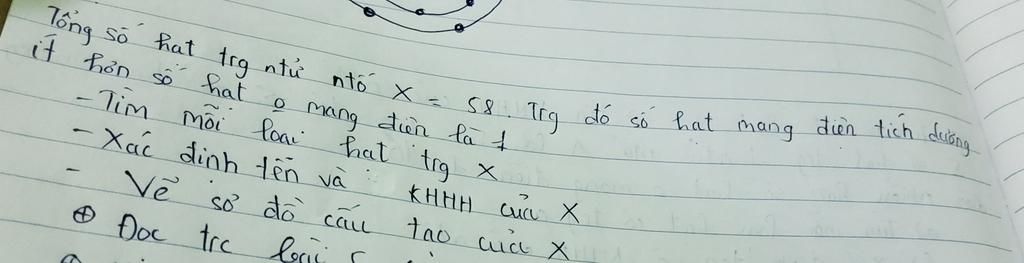 Tổng số hạt trg ntử ntố X = 58. Trg đó số hạt mang điện tích dương
ít hơn số hạt o mang điện là 1
- Tìm mỗi loại hạt trg X
- Xác định tên và KHHH của X
- Vẽ sơ đồ cấu tạo của X
⊕ Đọc trc